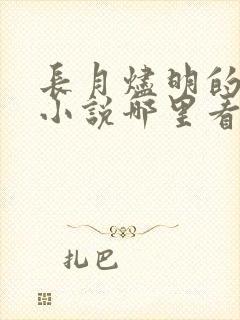 長月燼明的
小說哪里看
扎巴